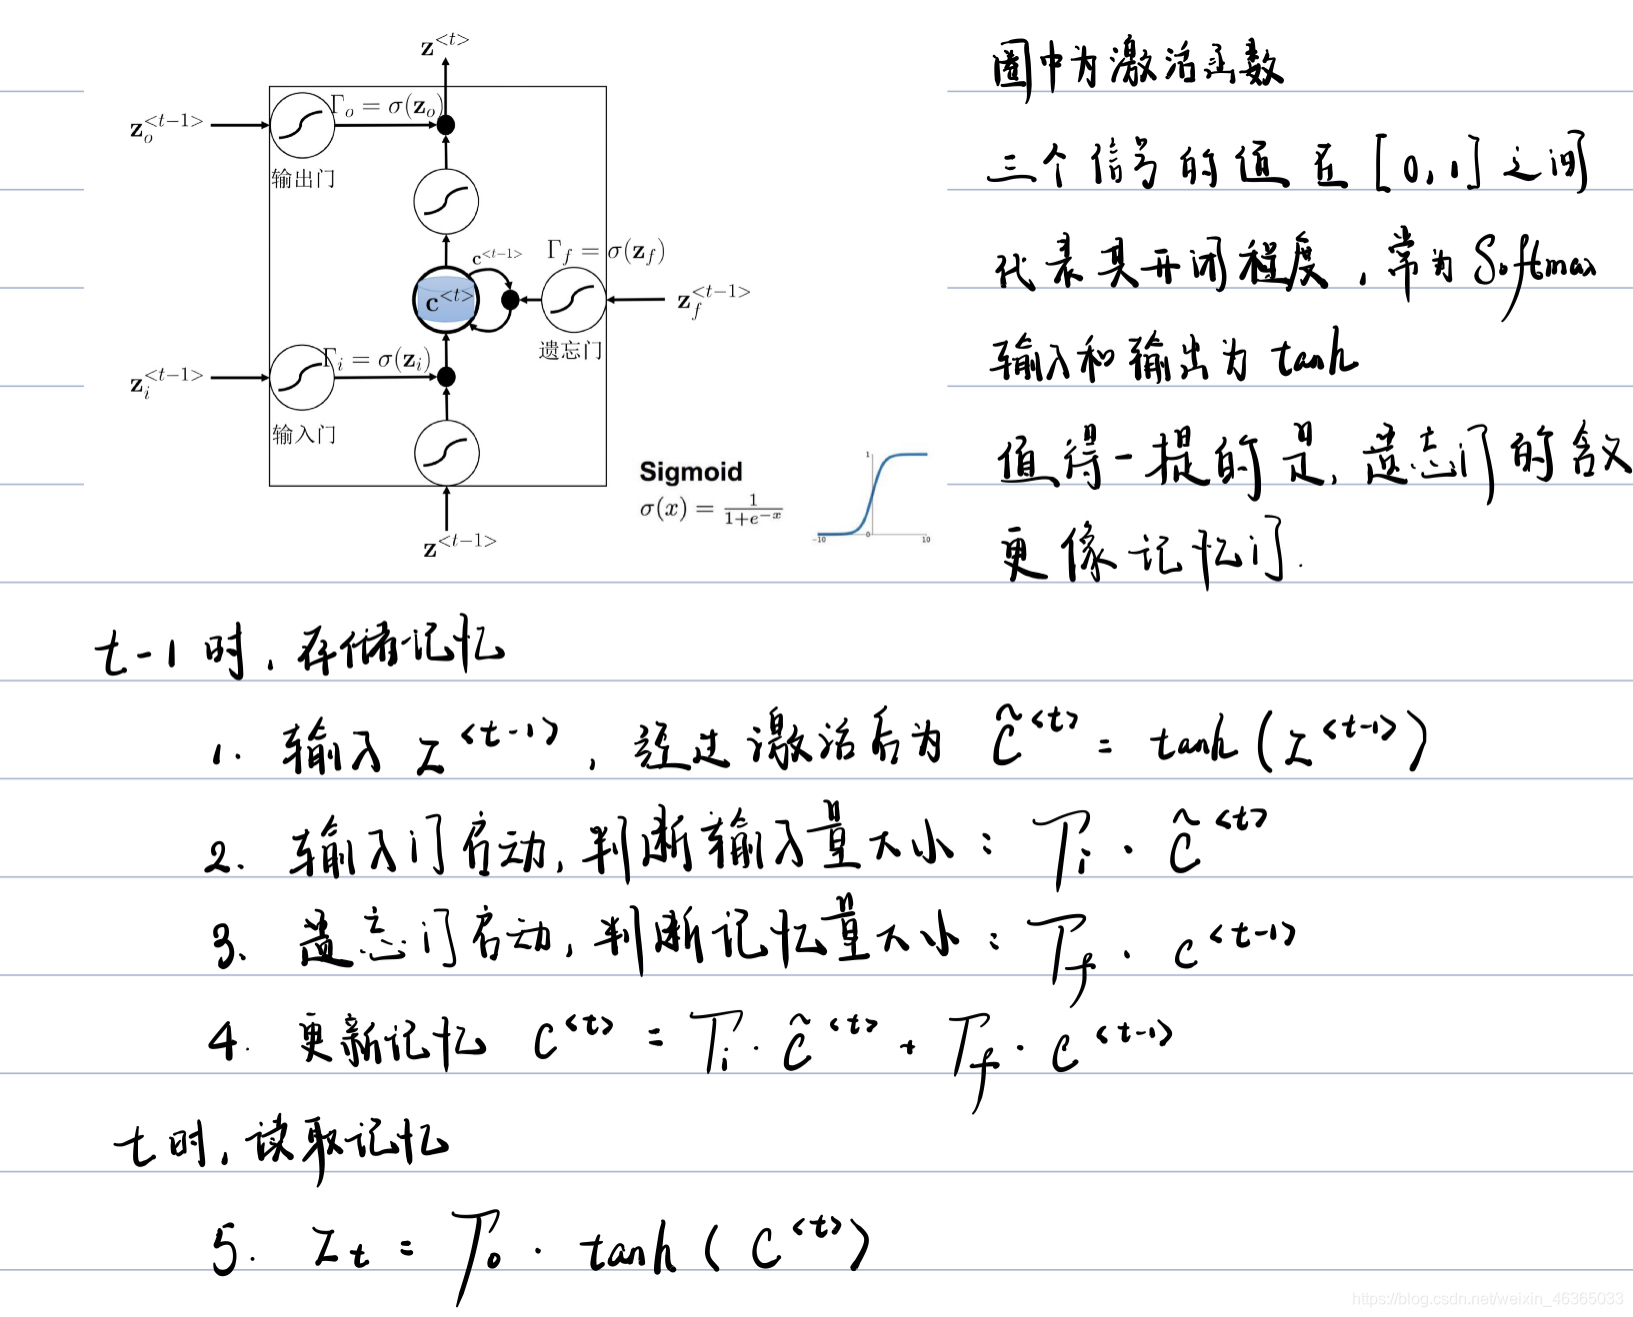 z^{<t>}
z_o^{<t-1>}
Γ_o = σ(z_o)
输出门
c^{<t-1>}
Γ_f = σ(z_f)
c^{<t>}
z_f^{<t-1>}
遗忘门
z_i^{<t-1>}
Γ_i = σ(z_i)
输入门
z^{<t-1>}
Sigmoid
σ(x) = \frac{1}{1+e^{-x}}
1
-10 0 10
圈中为激活函数
三个信号的值在[0,1]之间
代表其开闭程度，常为Softmax
输入和输出为tanh
值得一提的是，遗忘门的含义
更像记忆门.
t-1时，存储记忆
1. 输入 z^{<t-1>}，经过激活后为 \tilde{c}^{<t>} = tanh(z^{<t-1>})
2. 输入门启动，判断输入量大小：Γ_i · \tilde{c}^{<t>}
3. 遗忘门启动，判断记忆量大小：Γ_f · c^{<t-1>}
4. 更新记忆 c^{<t>} = Γ_i · \tilde{c}^{<t>} + Γ_f · c^{<t-1>}
t时，读取记忆
5. z_t = Γ_o · tanh(c^{<t>})
https://blog.csdn.net/weixin_46365033